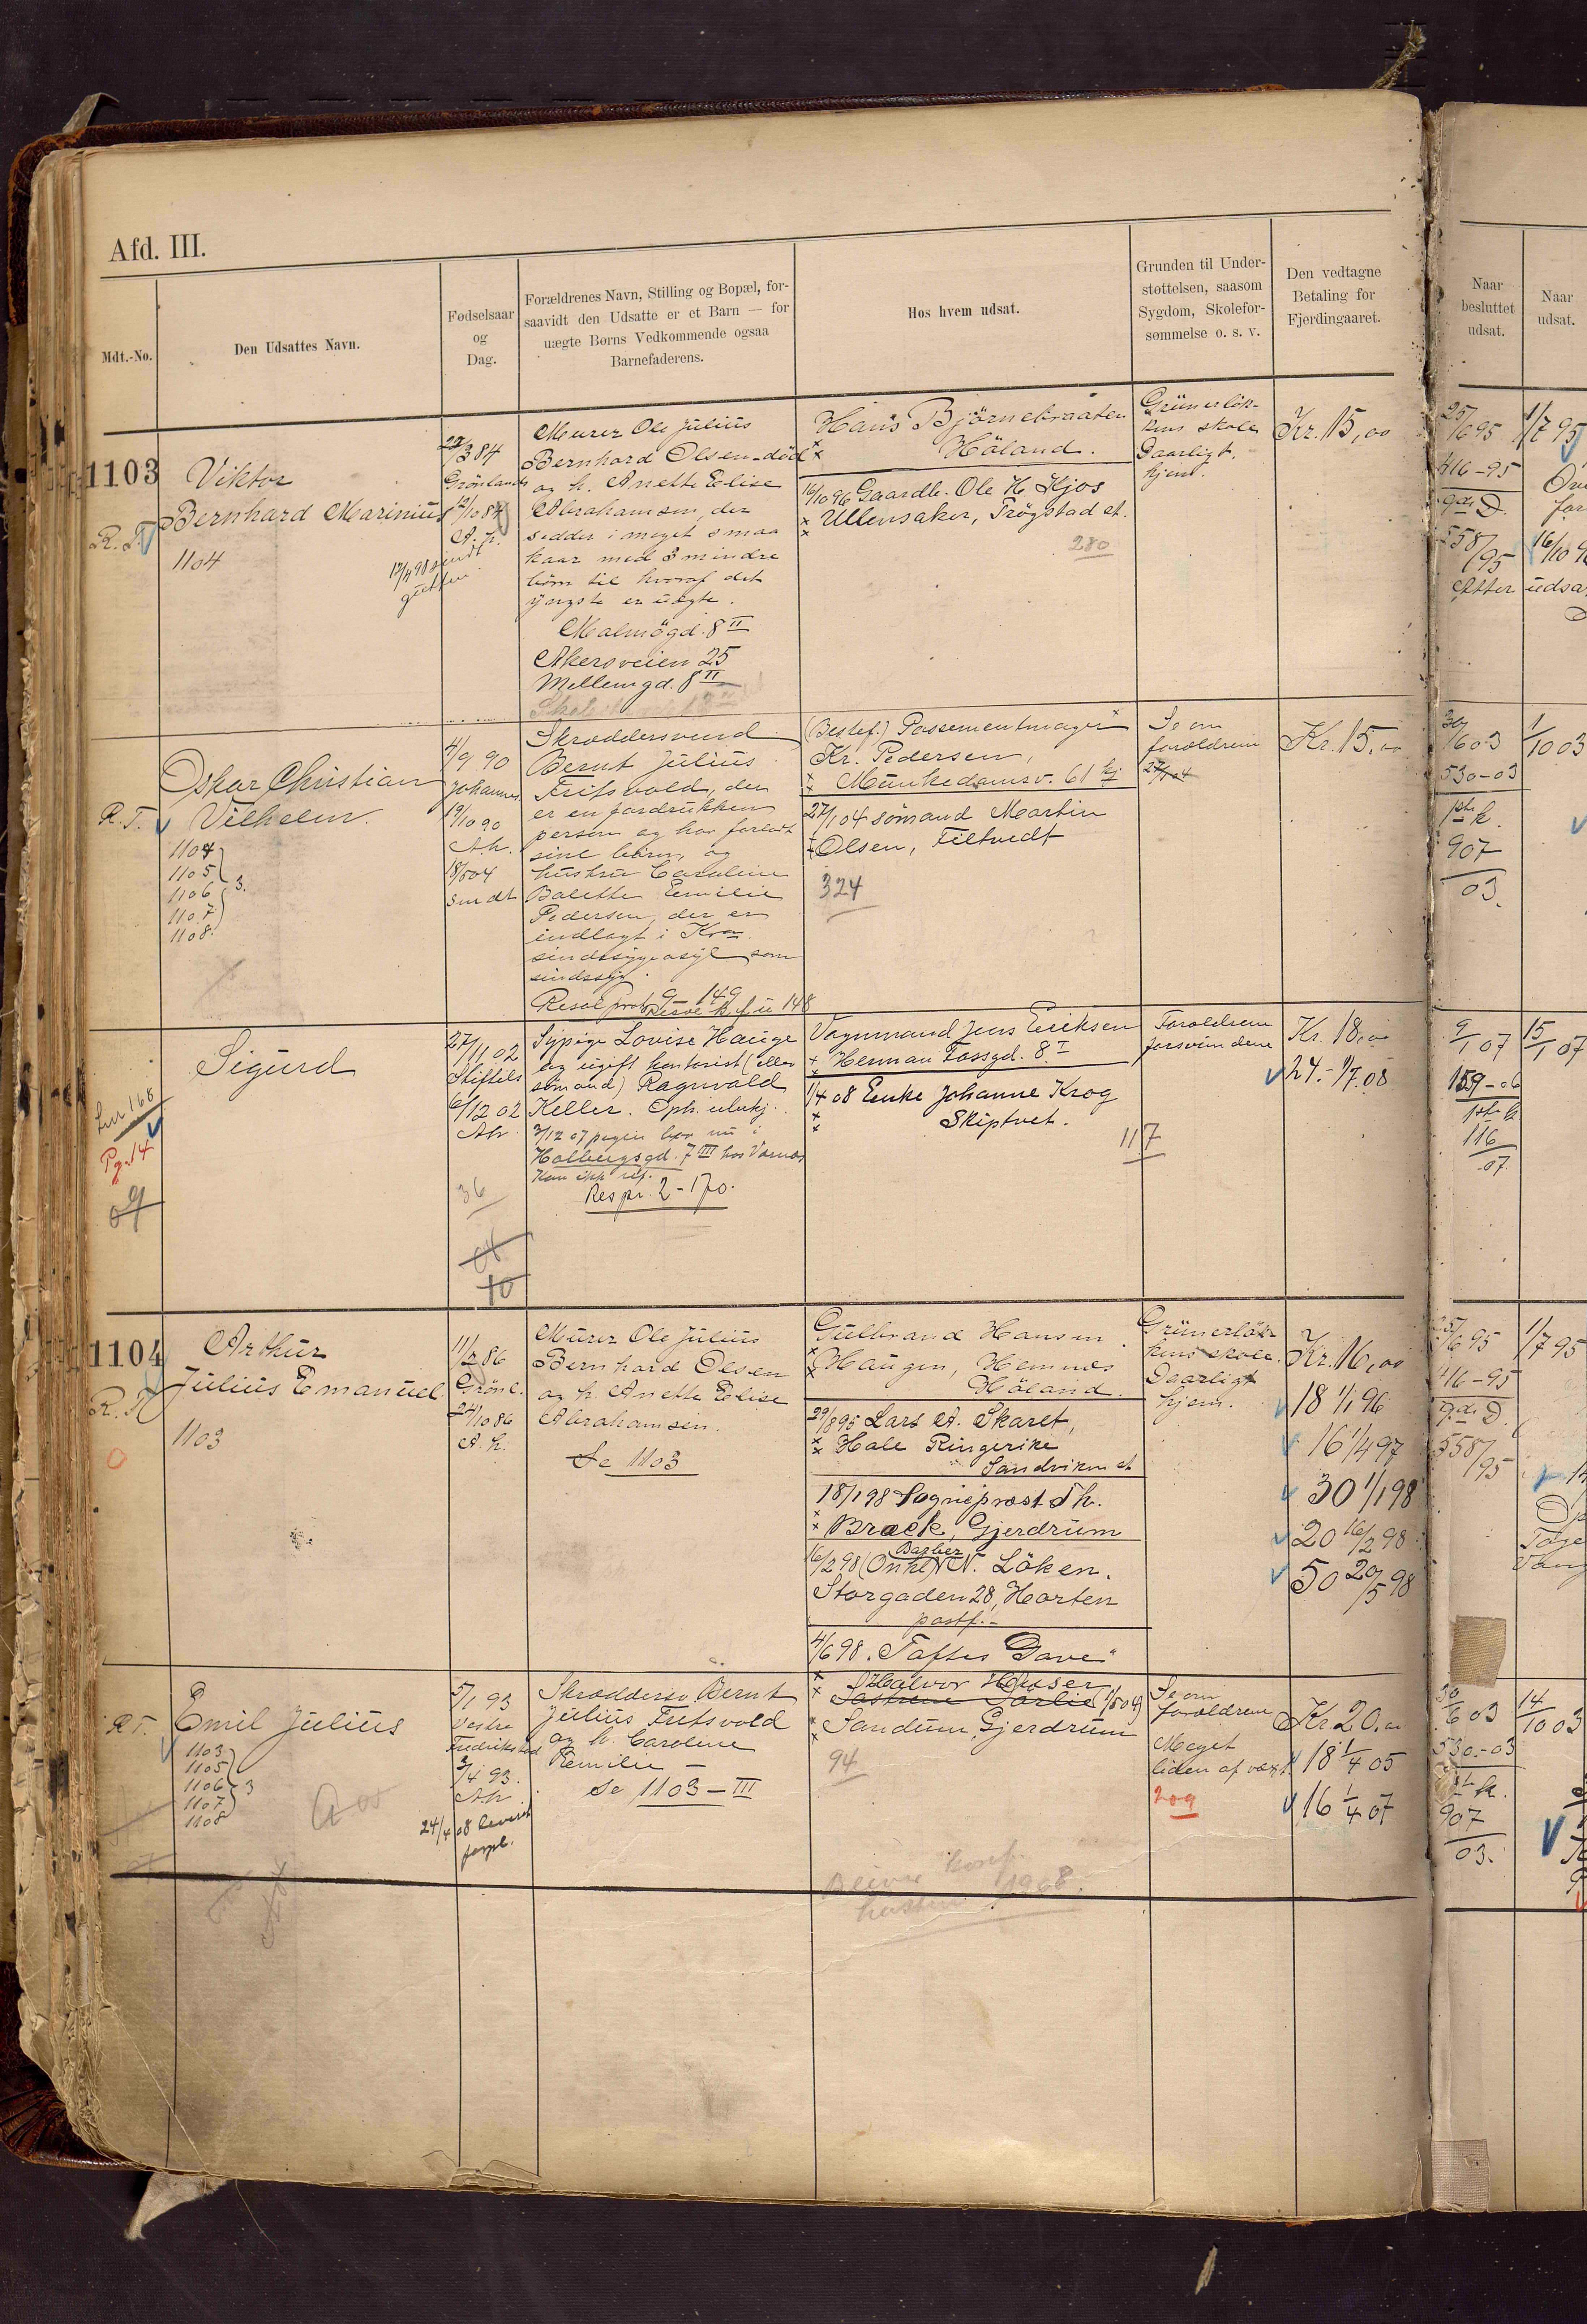 Afd. III.
Mdt.-No.
Den Udsattes Navn.
Fødselsaar
og
Dag.
Forældrenes Navn, Stilling og Bopæl, for-
saavidt den Udsatte er et Barn — for
uægte Børns Vedkommende ogsaa
Barnefaderens.
Hos hvem udsat.
Grunden til Under-
støttelsen, saasom
Sygdom, Skolefor-
sømmelse o. s. v.
Den vedtagne
Betaling for
Fjerdingaaret.
Naar
besluttet
udsat.
Naar
udsat.
1103
R. T.
Viktor
Bernhard Marinius
1104
22/3 84
Grønlands
12/10 84
A. h.
17/4 98 sendt
gutten
Murer Ole Julius
Bernhard Olsen - død
og h. Anette Elise
Abrahamsen, der
sedder i meget smaa
kaar med 3 mindre
børn til hvoraf det
yngste er uægte.
Malmøgd. 8 II
Akersveien 25
Mellemgd. 8 II
Hans Björnebraaten
Höland.
16/10 96 Gaardb. Ole H. Kjos
Ullensaker, Trøgstad st.
280
Grünerløk-
kens skole
Daarligt.
hjem.
Kr. 15,00
25/6 95
416-95
9de D.
558/95
Efter udsa
1/7 95
16/10 9
R. T.
Oskar Christian
Vilhelm.
1104
1105
1106 3.
1107
1108.
4/9 90
Johannes
19/10 90
A.h.
18/5 04
sendt
Skræddersvend
Bernt Julius
Fritsvold, der
er en fordrukken
person og har forladt
sine børn, og
hustru Caroline
Balette Emilie
Pedersen, der er
indlagt i Kra.
sindssygeasyl som
sindssyg.
Resol prot 9 - 149
148
(Bestef.) Possementmager
Kr. Pedersen,
Munkedamsv. 61 kj
27/1 04 sömand Martin
Olsen, Filtvedt
324
Se om
forældrene
27/1 04
Kr. 15.00
30/6 03
530-03
1ste k.
907
03.
1/10 03
Pg. 14
Sigurd
27/11 02
Stiftels
6/12 02
Ah
36
04
10
Sypige Lovise Hauge
og ugift kontorist (eller
sömand) Ragnvald
Keller. Oph. ubekj.
3/12 07 pigen bor nu i
Holbergsgd. 7 III hos Varnæs
Kan ikke ref.
Res pr. 2 - 170.
Vognmand Jens Eriksen
Herman Fossgd. 8 I
1/4 08 Enke Johanne Krog
Skiptvet.
117
Forældrene
forsvundene
Kr. 18,00
24.- 1/7. 08
9/1 07
159-06
1ste k
116
07.
15/1 07
1104
R. T.
Arthur
Julius Emanuel
1103
11/2 86
Grønl.
24/10 86
A. h.
Murer Ole Julius
Bernhard Olsen
og h. Anette Elise
Abrahamsen.
Se 1103
Gulbrand Hansen
Haugen, Hemnes
Höland.
29/8 95 Lars A. Skaret,
Hole Ringerike
Sandviken st
18/1 98 Sognepræst Th.
Bræck, Gjerdrum
Barber
16/2 98 (Onkel) N. Löken.
Storgaden 28, Horten
postf.-
4/6 98. "Toftes Gave"
Grünerløk-
kens skole.
Daarligt
hjem.
Kr. 16,00
18 1/1 96
16 1/4 97
30 1/1 98
20 16/2 98
50 20/5 98
25/6 95
416-95
9de D.
558/95
1/7 95
R T.
Emil Julius
1103
1105
1106 3
1107
1108
5/1 93
Vestre
Fredrikstad
3/4 93.
Ah
24/4 08 leverit
forpl.
Skræddersv. Bernt
Julius Fritsvold
og h. Caroline
Emilie -
Se 1103 - III
Halvor Moser
Sandum Gjerdrum
94
Se om
forældrene
Meget
liden af vækst
209
Kr. 20.00
18 1/4 05
16 1/4 07
30/6 03
530-03
1ste k.
907
03.
14/10 03
Blir konf.
høsten 1908.